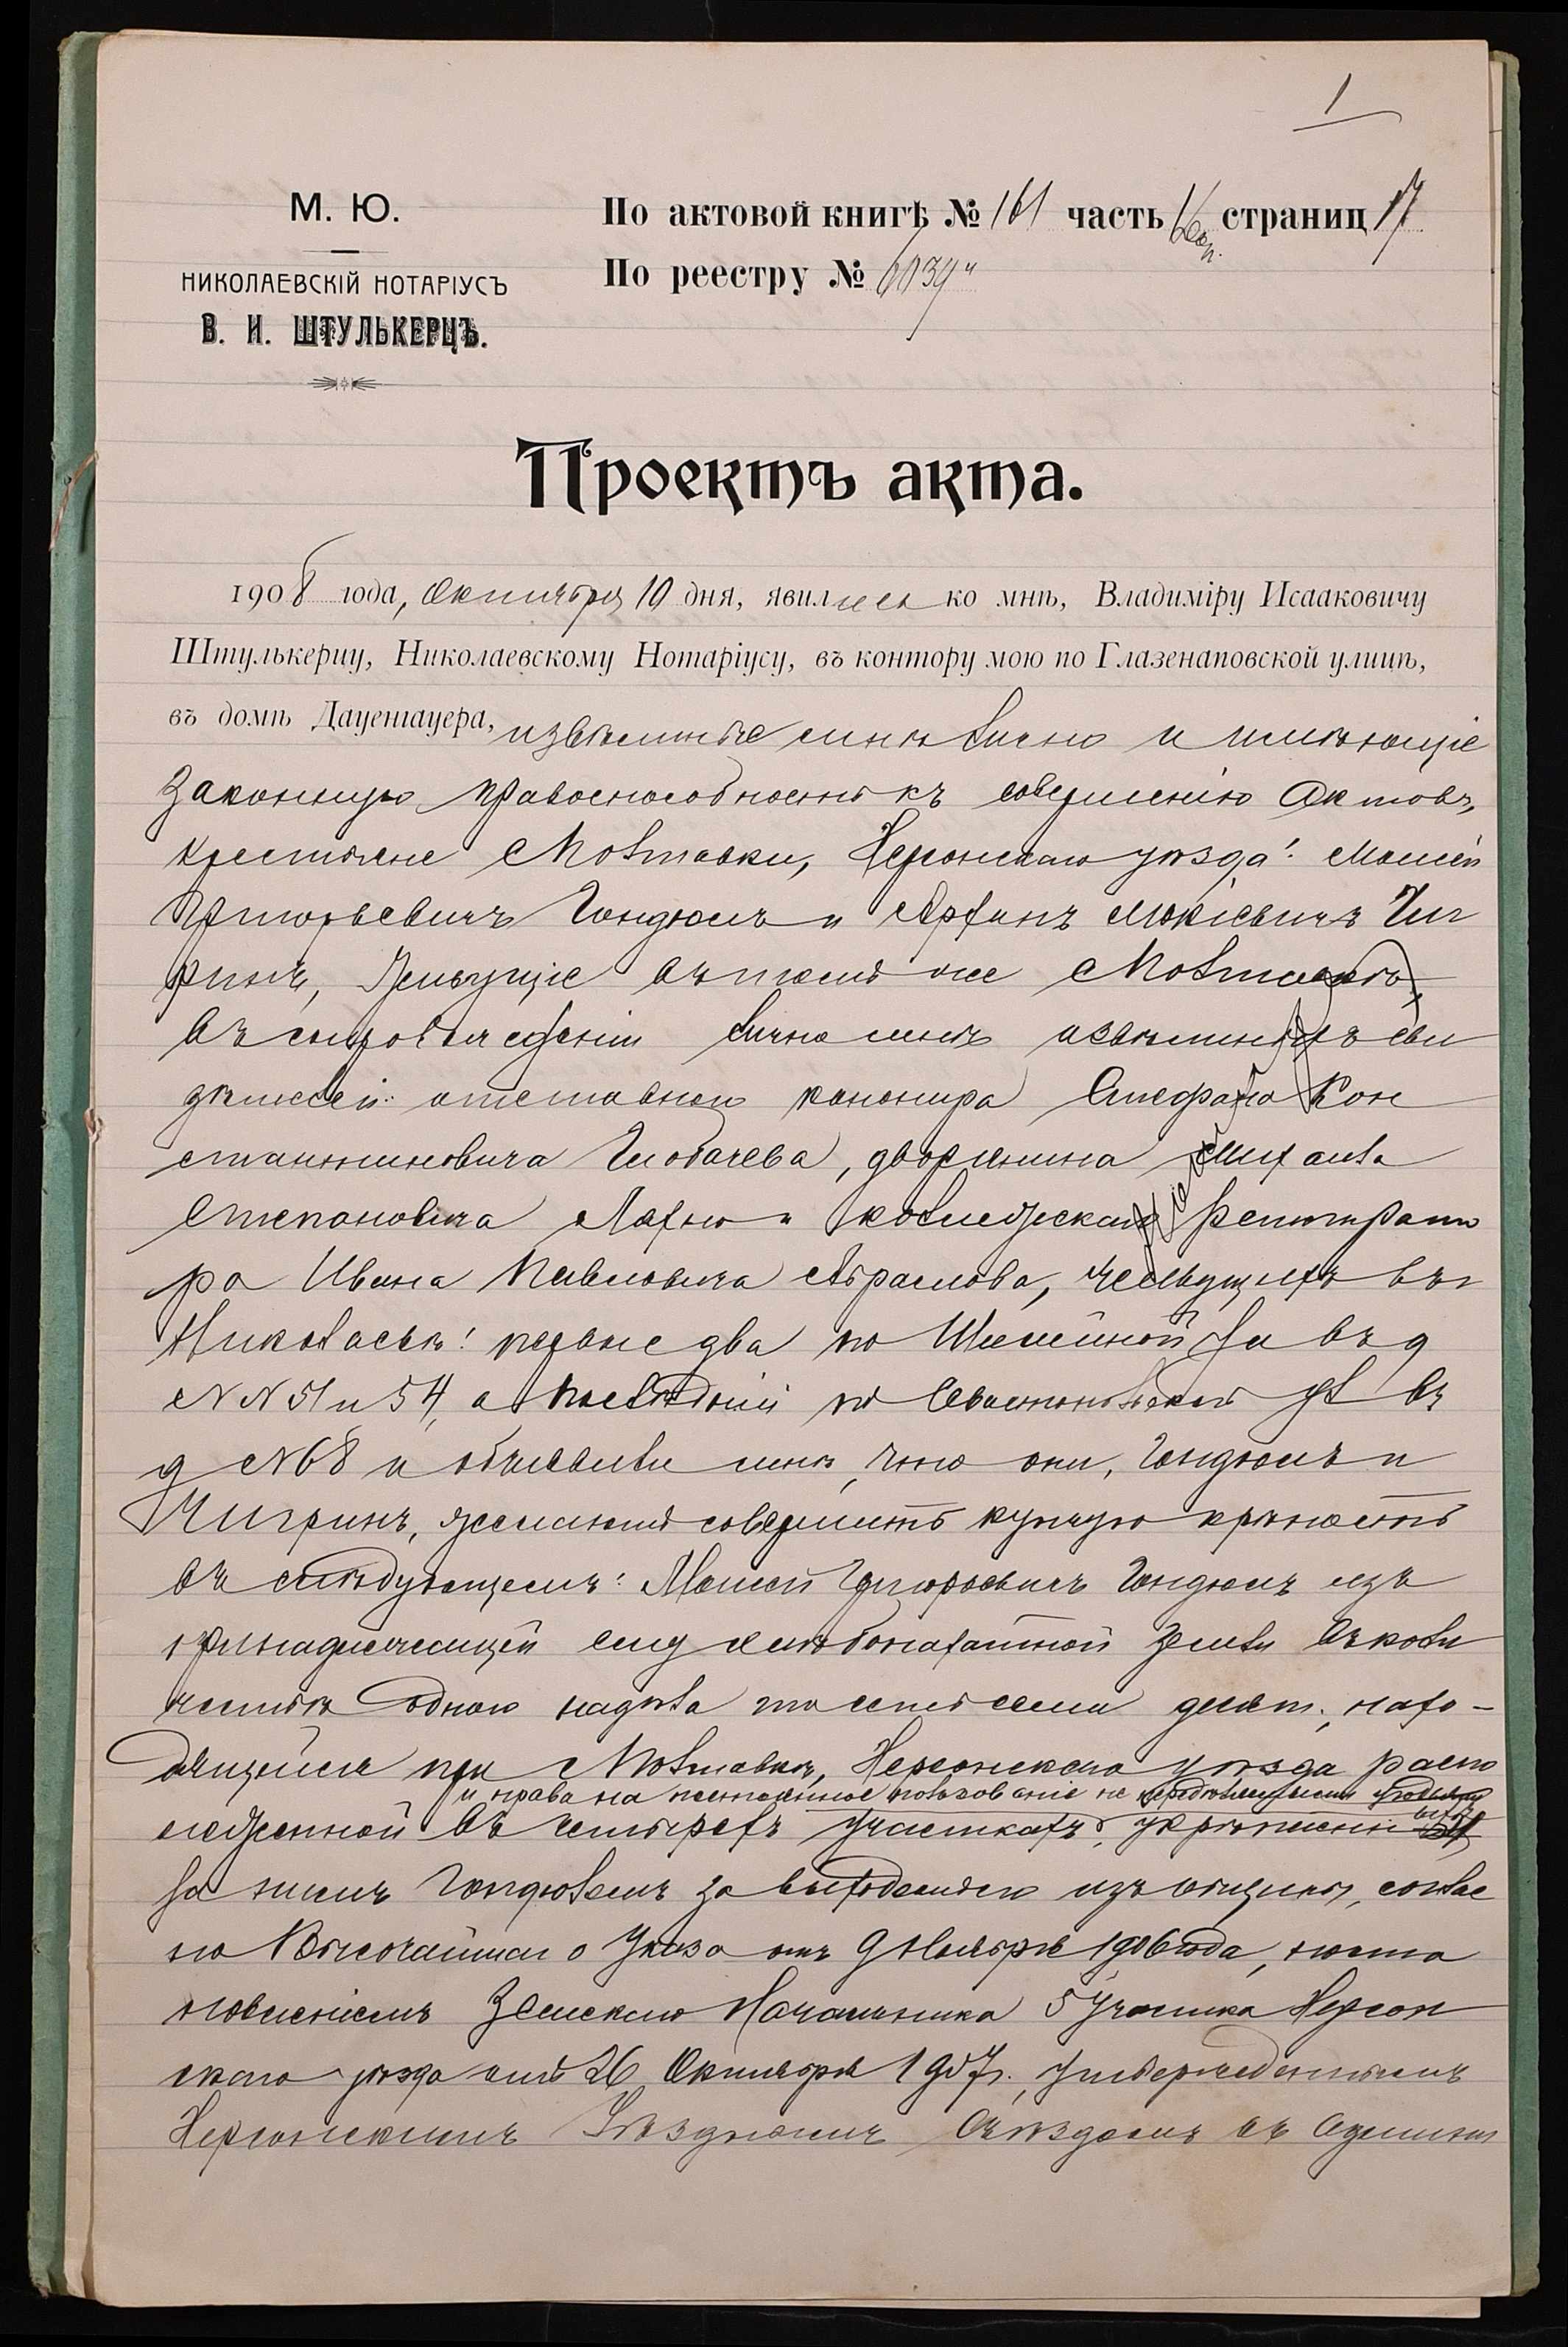 1
М. Ю.
НИКОЛАЕВСКІЙ НОТАРІУСЪ
В. И. ШТУЛЬКЕРЦЪ.
По актовой книгѣ № 161 часть страниц 17
По реестру №
Проектъ акта.
1908 года, Октября 10 дня, явились ко мнѣ, Владиміру Исааковичу
Штулькерцу, Николаевскому Нотаріусу, въ контору мою по Глазенаповской улицѣ,
въ домѣ Дауенгауера, извѣстные мнѣ лично и имѣющіе
законную правоспособность къ совершенію актовъ,
крестьяне с Полтавки, Херсонскаго уѣзда: Моисей
Григорьевичъ Гондюлъ и Чи
гринъ, живущіе въ той же с Полтавкѣ,
въ сопровожденіи лично мнѣ извѣстныхъ сви
дѣтелей: отставного канонира Стефана Кон
стантиновича Глобачева, дворянина Михаила
Степановича Лахно и коллежскаго регистрато
ра Ивана Павловича Абрамова, живущихъ въ г
Николаевѣ: первые два по ул въ д
№ № 51 и 54, а послѣдній по Севастопольской ул въ
д № 68 и объявили мнѣ, что они, Гондюлъ и
Чигринъ, желаютъ совершить купчую крѣпость
въ слѣдующемъ: Моисей Григорьевичъ Гондюлъ изъ
принадлежащей ему хлѣбопахатной земли въ коли
чествѣ одного надѣла десят., нахо-
дящейся при с Полтавкѣ, Херсонскаго уѣзда распо
и права на постоянное пользованіе не угодьями
ложенной въ четырехъ участкахъ, укрѣпленной
за нимъ Гондюломъ за выходомъ изъ общины, соглас
но Высочайшаго Указа отъ 9 Ноября 1906 года, поста
новленіемъ Земскаго Начальника 5 Участка Херсон
скаго уѣзда отъ 26 Октября 1907 г., утвержденнымъ
Херсонскимъ Уѣзднымъ Съѣздомъ въ Админи